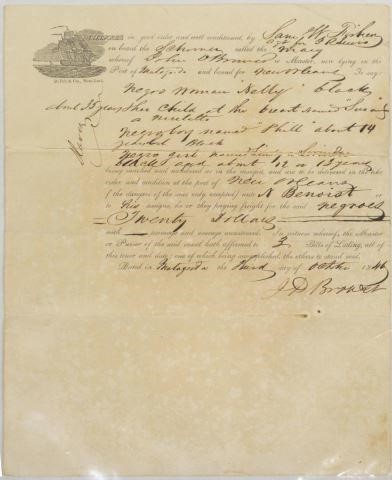 in good order and well conditioned, by Sam W. Fisher
on board the Schooner called the Mary
whereof John is Master, now lying in the
Port of Matagorda and bound for New Orleans To say:
Negro Woman Nelly black
about 35 years her Child at the breast named "Susan"
a
Negro boy named "Phill" about 14
years old Black
Negro girl named
aged about 12 or 13 years
being marked and numbered as in the margin, and are to be delivered in the like
order and condition at the port of New Orleans
(the dangers of the seas only excepted) unto N Benoist
or to his assigns, he or they paying freight for the said negroes
Twenty Dollars
with primage and average accustomed. In witness whereof, the Master
or Purser of the said vessel hath affirmed to 3 Bills of Lading, all of
this tenor and date; one of which being accomplished, the others to stand void.
Dated in Matagorda the Third day of October 1846
J D Brown